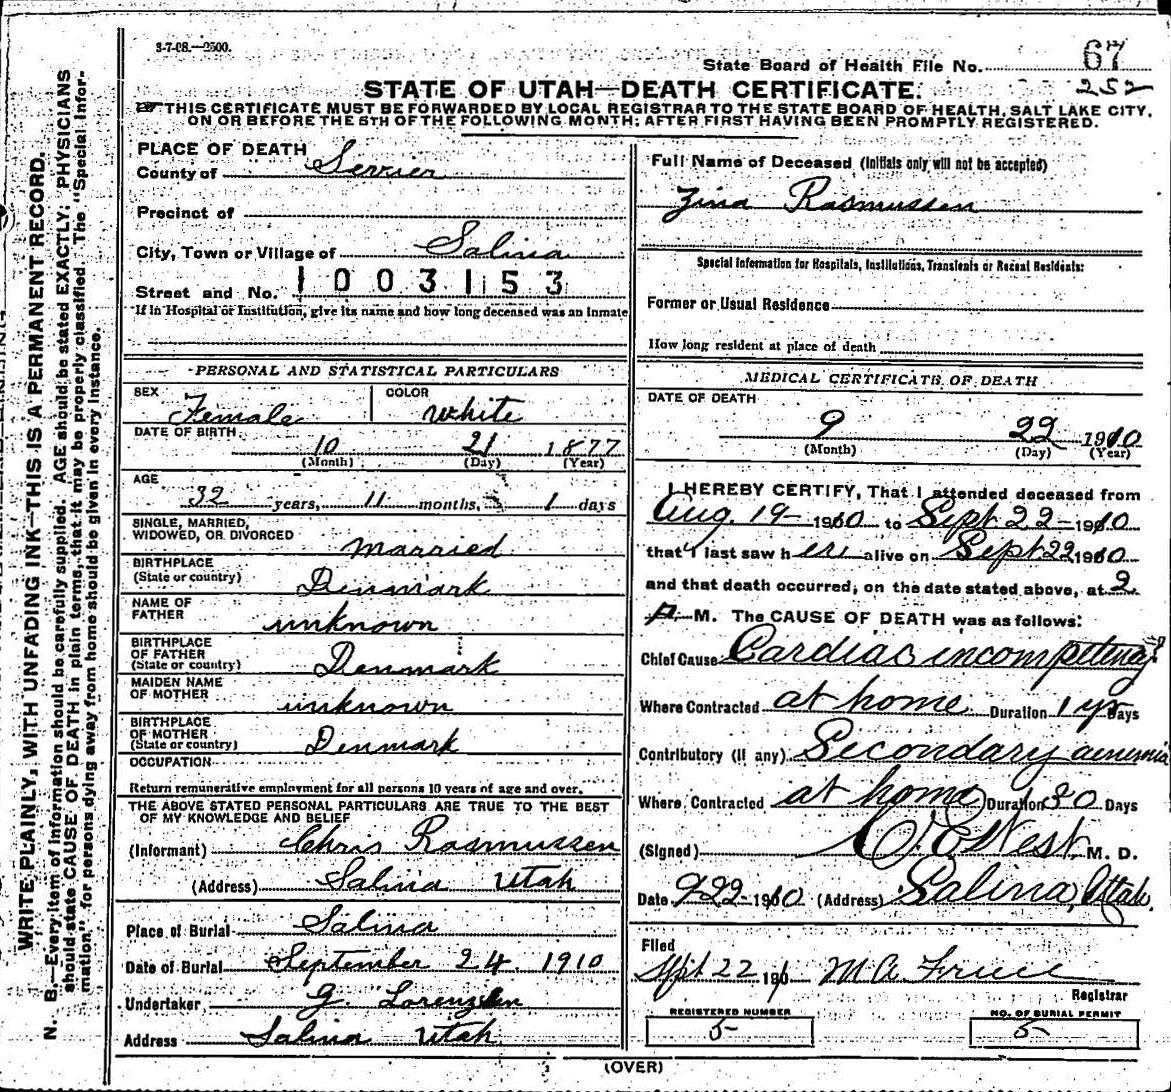 3-7-08.—2500.
State Board of Health File No. 67
252
STATE OF UTAH—DEATH CERTIFICATE.
THIS CERTIFICATE MUST BE FORWARDED BY LOCAL REGISTRAR TO THE STATE BOARD OF HEALTH, SALT LAKE CITY,
ON OR BEFORE THE 5TH OF THE FOLLOWING MONTH; AFTER FIRST HAVING BEEN PROMPTLY REGISTERED.
WRITE PLAINLY, WITH UNFADING INK—THIS IS A PERMANENT RECORD.
N. B.—Every item of information should be carefully supplied. AGE should be stated EXACTLY; PHYSICIANS
should state CAUSE OF DEATH in plain terms, that it may be properly classified. The "Special Infor-
mation" for persons dying away from home should be given in every instance.
PLACE OF DEATH
County of Serrier
Precinct of
City, Town or Village of Salina
Street and No. 1003153
If in Hospital or Institution, give its name and how long deceased was an inmate
PERSONAL AND STATISTICAL PARTICULARS
SEX Female
COLOR White
DATE OF BIRTH 10 21 1877
(Month) (Day) (Year)
AGE
32 years, 11 months, 1 days
SINGLE, MARRIED,
WIDOWED, OR DIVORCED married
BIRTHPLACE
(State or country) Denmark
NAME OF
FATHER unknown
BIRTHPLACE
OF FATHER
(State or country) Denmark
MAIDEN NAME
OF MOTHER unknown
BIRTHPLACE
OF MOTHER
(State or country) Denmark
OCCUPATION
Return remunerative employment for all persons 10 years of age and over.
THE ABOVE STATED PERSONAL PARTICULARS ARE TRUE TO THE BEST
OF MY KNOWLEDGE AND BELIEF
(Informant) Chris Rasmussen
(Address) Salina Utah
Place of Burial Salina
Date of Burial September 24. 1910
Undertaker G. Lorenzen
Address Salina Utah
Full Name of Deceased (Initials only will not be accepted)
Zina Rasmussen
Special Information for Hospitals, Institutions, Transients or Recent Residents:
Former or Usual Residence
How long resident at place of death
MEDICAL CERTIFICATE OF DEATH
DATE OF DEATH
9 22 1910
(Month) (Day) (Year)
I HEREBY CERTIFY, That I attended deceased from
Aug. 19- 1910 to Sept 22- 1910
that I last saw her alive on Sept 22, 1910
and that death occurred, on the date stated above, at 2
P. M. The CAUSE OF DEATH was as follows:
Chief Cause Cardiac incompetency
Where Contracted at home Duration 1 yr Days
Contributory (if any) Secondary anemia
Where Contracted at home Duration 30 Days
(Signed) West M. D.
Date 9-22-1910 (Address) Salina, Utah.
Filed
Spt 22 191 M A
Registrar
REGISTERED NUMBER
5
NO. OF BURIAL PERMIT
5
(OVER)